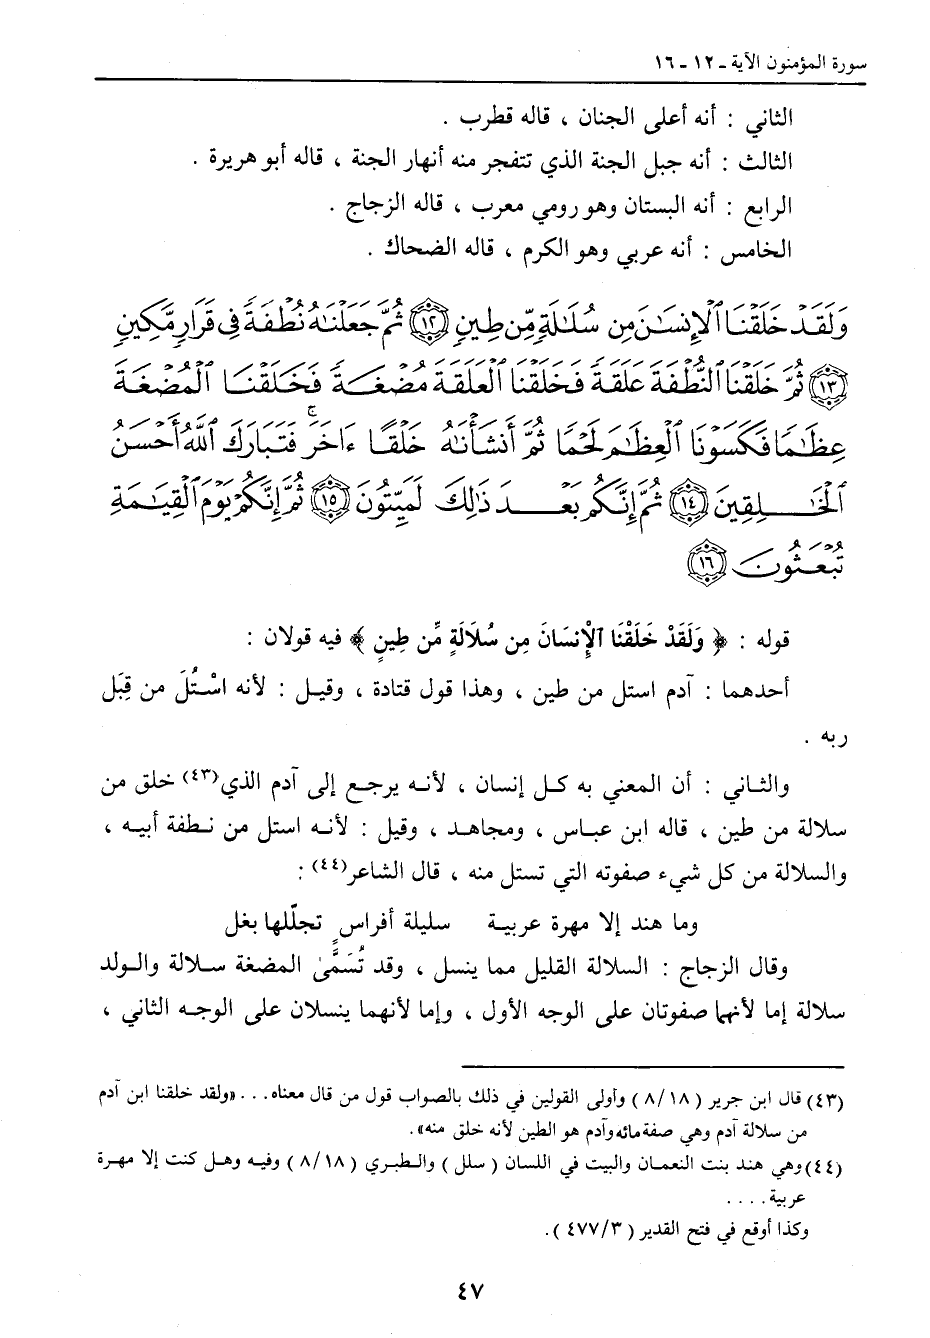 سورة المؤمنون الآية ـ ١٢ ـ ١٦
الثاني : أنه أعلى الجنان ، قاله قطرب .
الثالث : أنه جبل الجنة الذي تتفجر منه أنهار الجنة ، قاله أبو هريرة .
الرابع : أنه البستان وهو رومي معرب ، قاله الزجاج .
الخامس : أنه عربي وهو الكرم ، قاله الضحاك .
وَلَقَدْ خَلَقْنَا ٱلْإِنسَـٰنَ مِن سُلَـٰلَةٍ مِّن طِينٍ ﴿١٢﴾ ثُمَّ جَعَلْنَـٰهُ نُطْفَةً فِى قَرَارٍ مَّكِينٍ
﴿١٣﴾ ثُمَّ خَلَقْنَا ٱلنُّطْفَةَ عَلَقَةً فَخَلَقْنَا ٱلْعَلَقَةَ مُضْغَةً فَخَلَقْنَا ٱلْمُضْغَةَ
عِظَـٰمًا فَكَسَوْنَا ٱلْعِظَـٰمَ لَحْمًا ثُمَّ أَنشَأْنَـٰهُ خَلْقًا ءَاخَرَ ۚ فَتَبَارَكَ ٱللَّهُ أَحْسَنُ
ٱلْخَـٰلِقِينَ ﴿١٤﴾ ثُمَّ إِنَّكُم بَعْدَ ذَٰلِكَ لَمَيِّتُونَ ﴿١٥﴾ ثُمَّ إِنَّكُمْ يَوْمَ ٱلْقِيَـٰمَةِ
تُبْعَثُونَ ﴿١٦﴾
قوله : ﴿ وَلَقَدْ خَلَقْنَا ٱلْإِنسَانَ مِن سُلَالَةٍ مِّن طِينٍ ﴾ فيه قولان :
أحدهما : آدم استل من طين ، وهذا قول قتادة ، وقيل : لأنه اسْتُلَ من قِبَل
ربه .
والثاني : أن المعني به كل إنسان ، لأنه يرجع إلى آدم الذي(٤٣) خلق من
سلالة من طين ، قاله ابن عباس ، ومجاهد ، وقيل : لأنه استل من نطفة أبيه ،
والسلالة من كل شيء صفوته التي تستل منه ، قال الشاعر(٤٤) :
وما هند إلا مهرة عربية سليلة أفراسٍ تجلّلها بغل
وقال الزجاج : السلالة القليل مما ينسل ، وقد تُسَمَّىٰ المضغة سلالة والولد
سلالة إما لأنهما صفوتان على الوجه الأول ، وإما لأنهما ينسلان على الوجه الثاني ،
(٤٣) قال ابن جرير ( ٨/١٨ ) وأولى القولين في ذلك بالصواب قول من قال معناه... «ولقد خلقنا ابن آدم
من سلالة آدم وهي صفة مائه وآدم هو الطين لأنه خلق منه».
(٤٤) وهي هند بنت النعمان والبيت في اللسان ( سلل ) والطبري ( ٨/١٨ ) وفيه وهل كنت إلا مهرة
عربية....
وكذا أوقع في فتح القدير ( ٤٧٧/٣ ).
٤٧